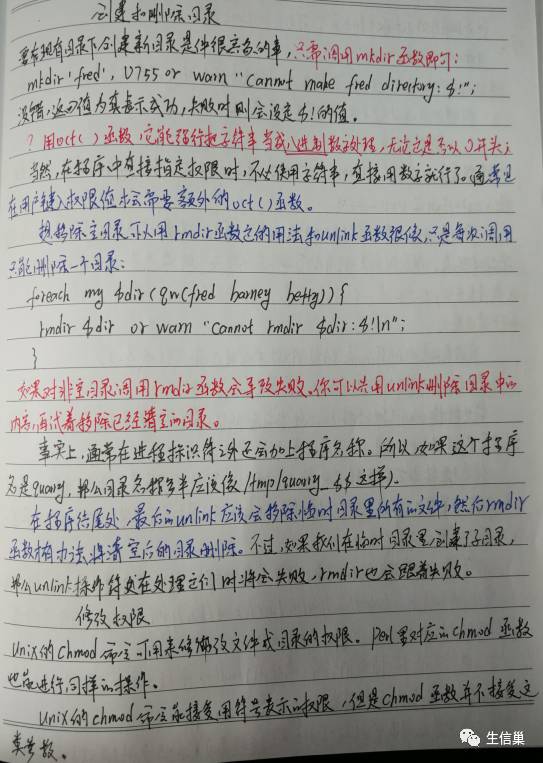 创建和删除目录
要在现有目录下创建新目录是件很容易的事，只需调用mkdir函数即可：
mkdir 'fred', 0755 or warn "Cannot make fred directory: $!";
没错，返回值为真表示成功，失败时则会设定$!的值。
？用oct()函数，它能强行把字符串当成八进制数字处理，无论它是否以0开头；
当然，在程序中直接指定权限时，不必使用字符串，直接用数字就行了。通常只
在用户键入权限值时才会需要额外的oct()函数。
想移除空目录可以用rmdir函数它的用法和unlink函数很像，只是每次调用
只能删除一个目录：
foreach my $dir (qw(fred barney betty)) {
rmdir $dir or warn "Cannot rmdir $dir: $!\n";
}
如果对非空目录调用rmdir函数会导致失败。你可以先用unlink删除目录中的
内容，再试着移除已经清空的目录。
事实上，通常在进程标识符之外还会加上程序名称。所以，如果这个程序
名是quarry，那么目录名称多半应该像/tmp/quarry_$$这样)。
在程序结尾处，最后的unlink应该会移除临时目录里所有的文件，然后rmdir
函数才有办法将清空后的目录删除。不过，如果我们在临时目录里创建了子目录，
那么unlink操作符在处理它们时将会失败，rmdir也会跟着失败。
修改权限
Unix的chmod命令可用来修改文件或目录的权限。perl里对应的chmod函数
也能进行同样的操作。
Unix的chmod命令能接受用符号表示的权限，但是chmod函数并不接受这
类参数。
生信巢